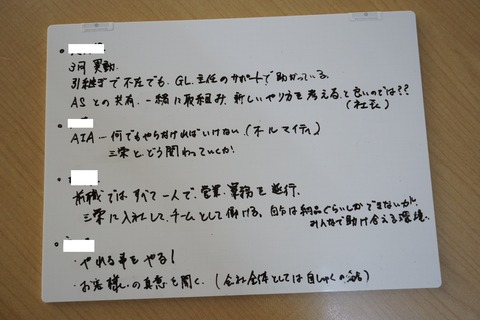 3月異動
引継ぎで不在でも、GL、主任のサポートで助かっている。
ASとの共有、一緒に取組み、新しいやり方を考えると良いのでは??
(社長)
AIA 一何でもやらなければいけない。(オールマイティ)
三栄とどう関わっていくか
前職ではすべて一人で、営業、業務を遂行。
三栄に入社して、チームとして働ける。自分は納品ぐらいしかできないが、
みんなで助け合える環境。
・やれる事をやる!
・お客様の真意を聞く。(会社全体としては自しゅくの